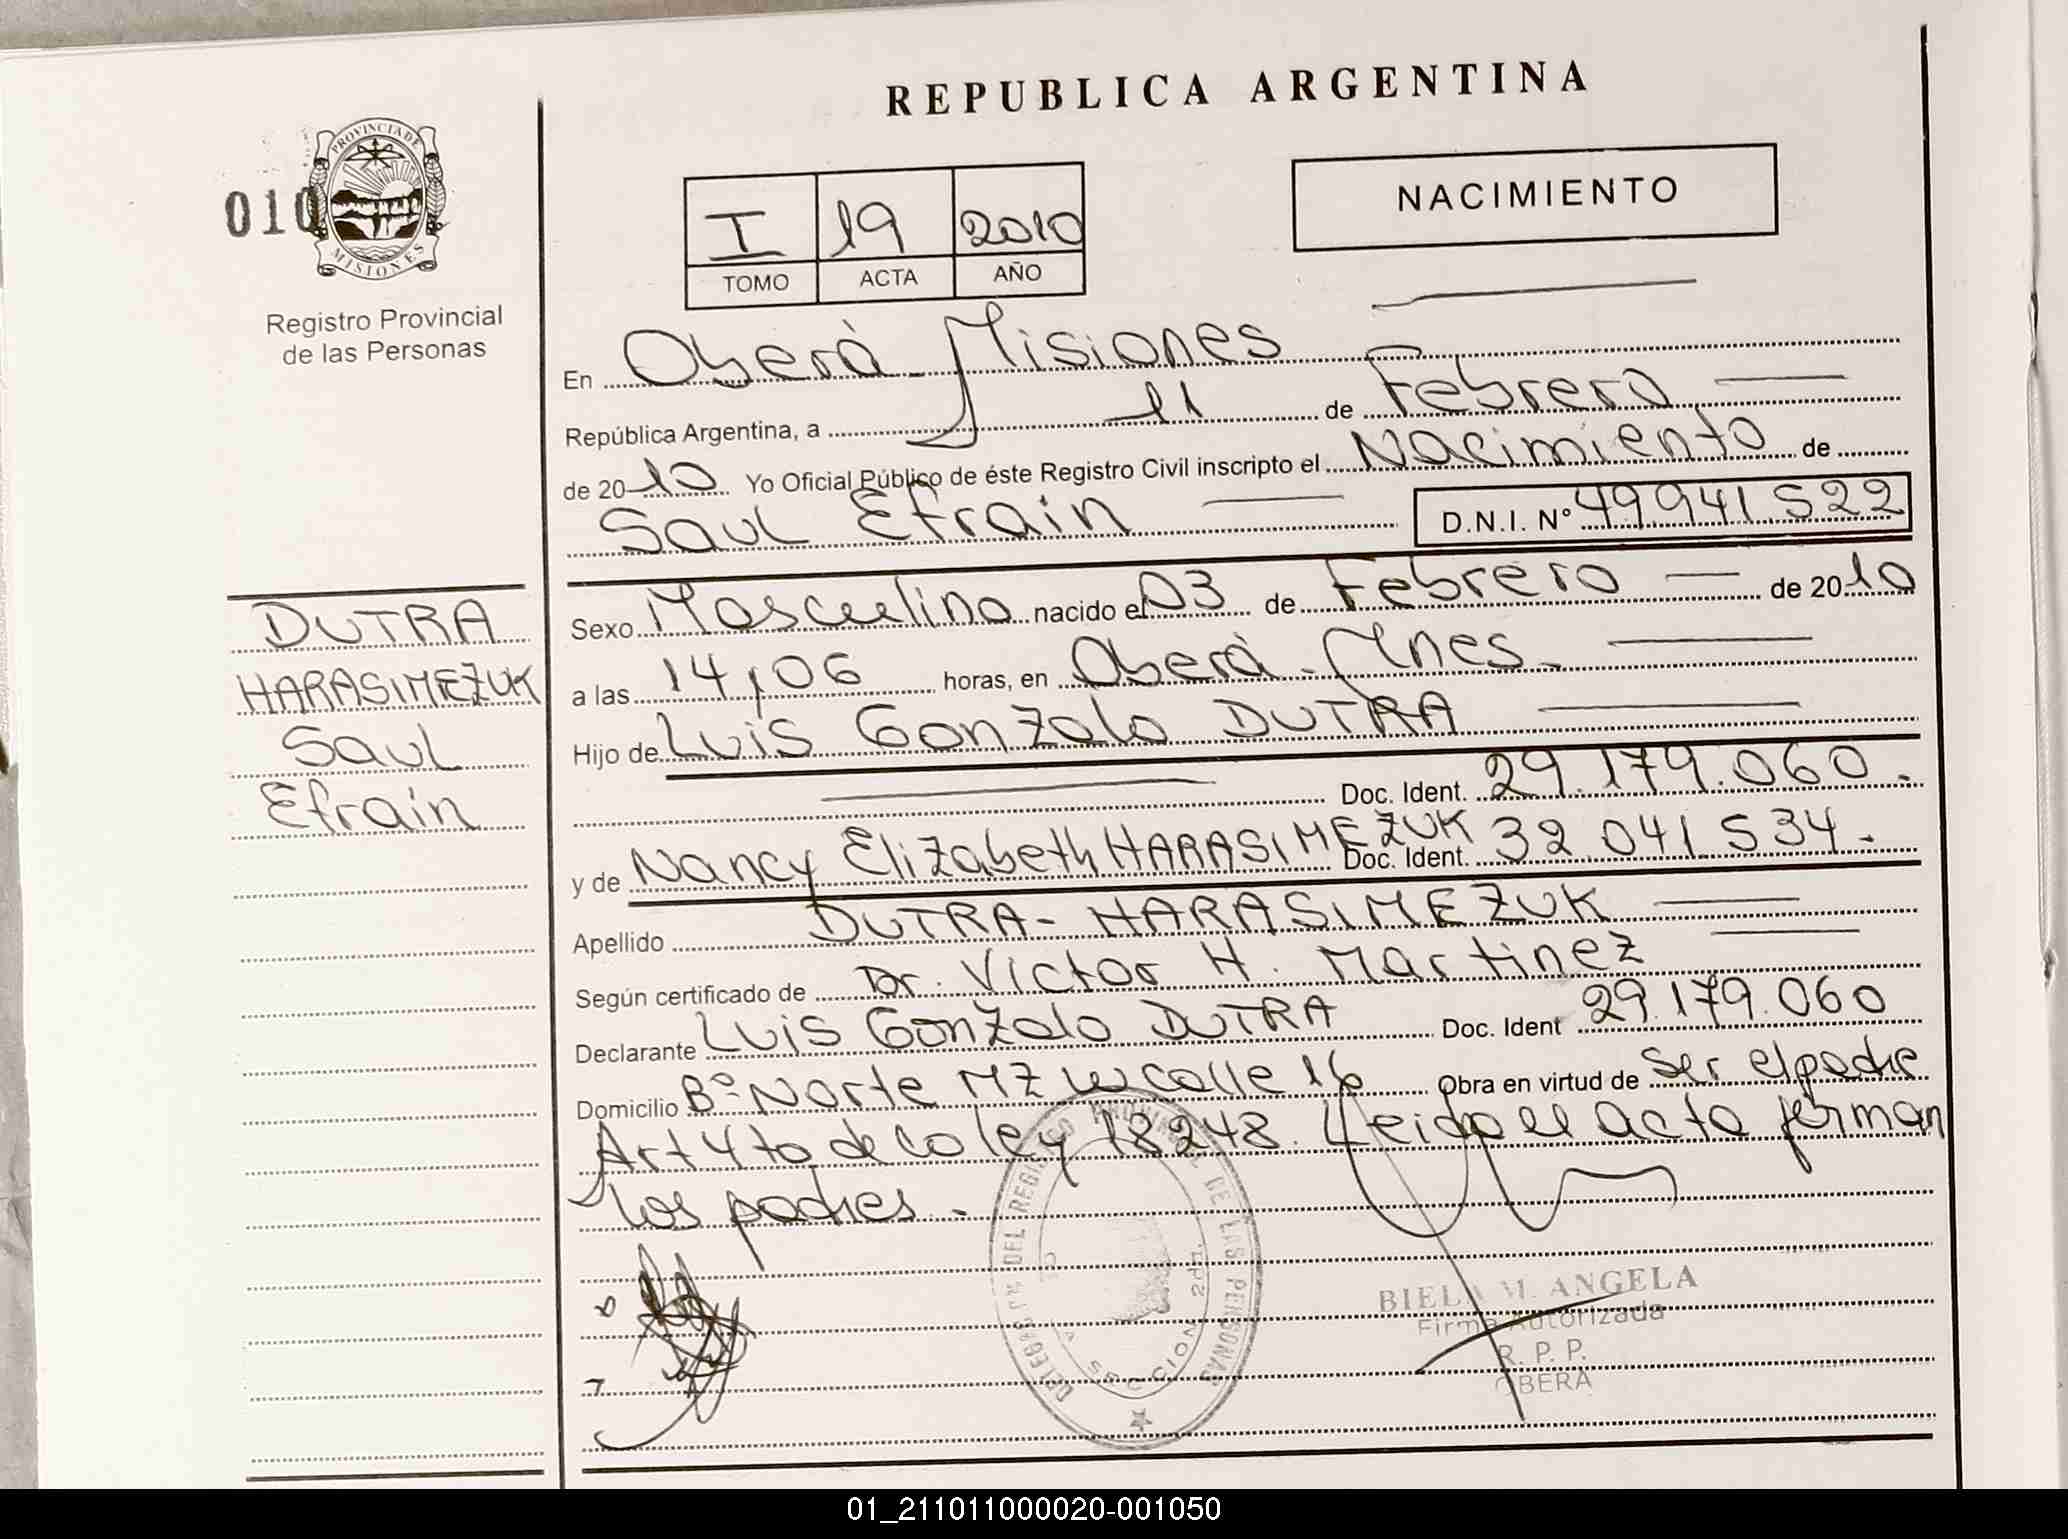 REPUBLICA ARGENTINA
PROVINCIA DE
MISIONES
010
Registro Provincial
de las Personas
I 19 2010
TOMO ACTA AÑO
NACIMIENTO
En Oberà Misiones
República Argentina, a 11 de Febrero
de 2010 Yo Oficial Público de éste Registro Civil inscripto el Nacimiento de
Saul Efrain D.N.I. Nº 49941522
DUTRA
HARASIMEZUK
Saul
Efrain
Sexo Masculino nacido el 03 de Febrero de 2010
a las 14,06 horas, en Oberà - Mnes.
Hijo de Luis Gonzalo DUTRA
Doc. Ident. 29.179.060.
y de Nancy Elizabeth HARASIMEZUK Doc. Ident. 32 041 534.
Apellido DUTRA - HARASIMEZUK
Según certificado de Dr. Victor H. Martinez
Declarante Luis Gonzalo DUTRA Doc. Ident 29.179.060
Domicilio Bº Norte MZ W calle 16 Obra en virtud de ser el padre
Art 4to de la ley 18248. Leida el acta firman
los padres.
DEL REGISTRO PROVINCIAL DE LAS PERSONAS
SECCION 2da.
BIELA M. ANGELA
Firma Autorizada
R. P. P.
OBERA
01_211011000020-001050